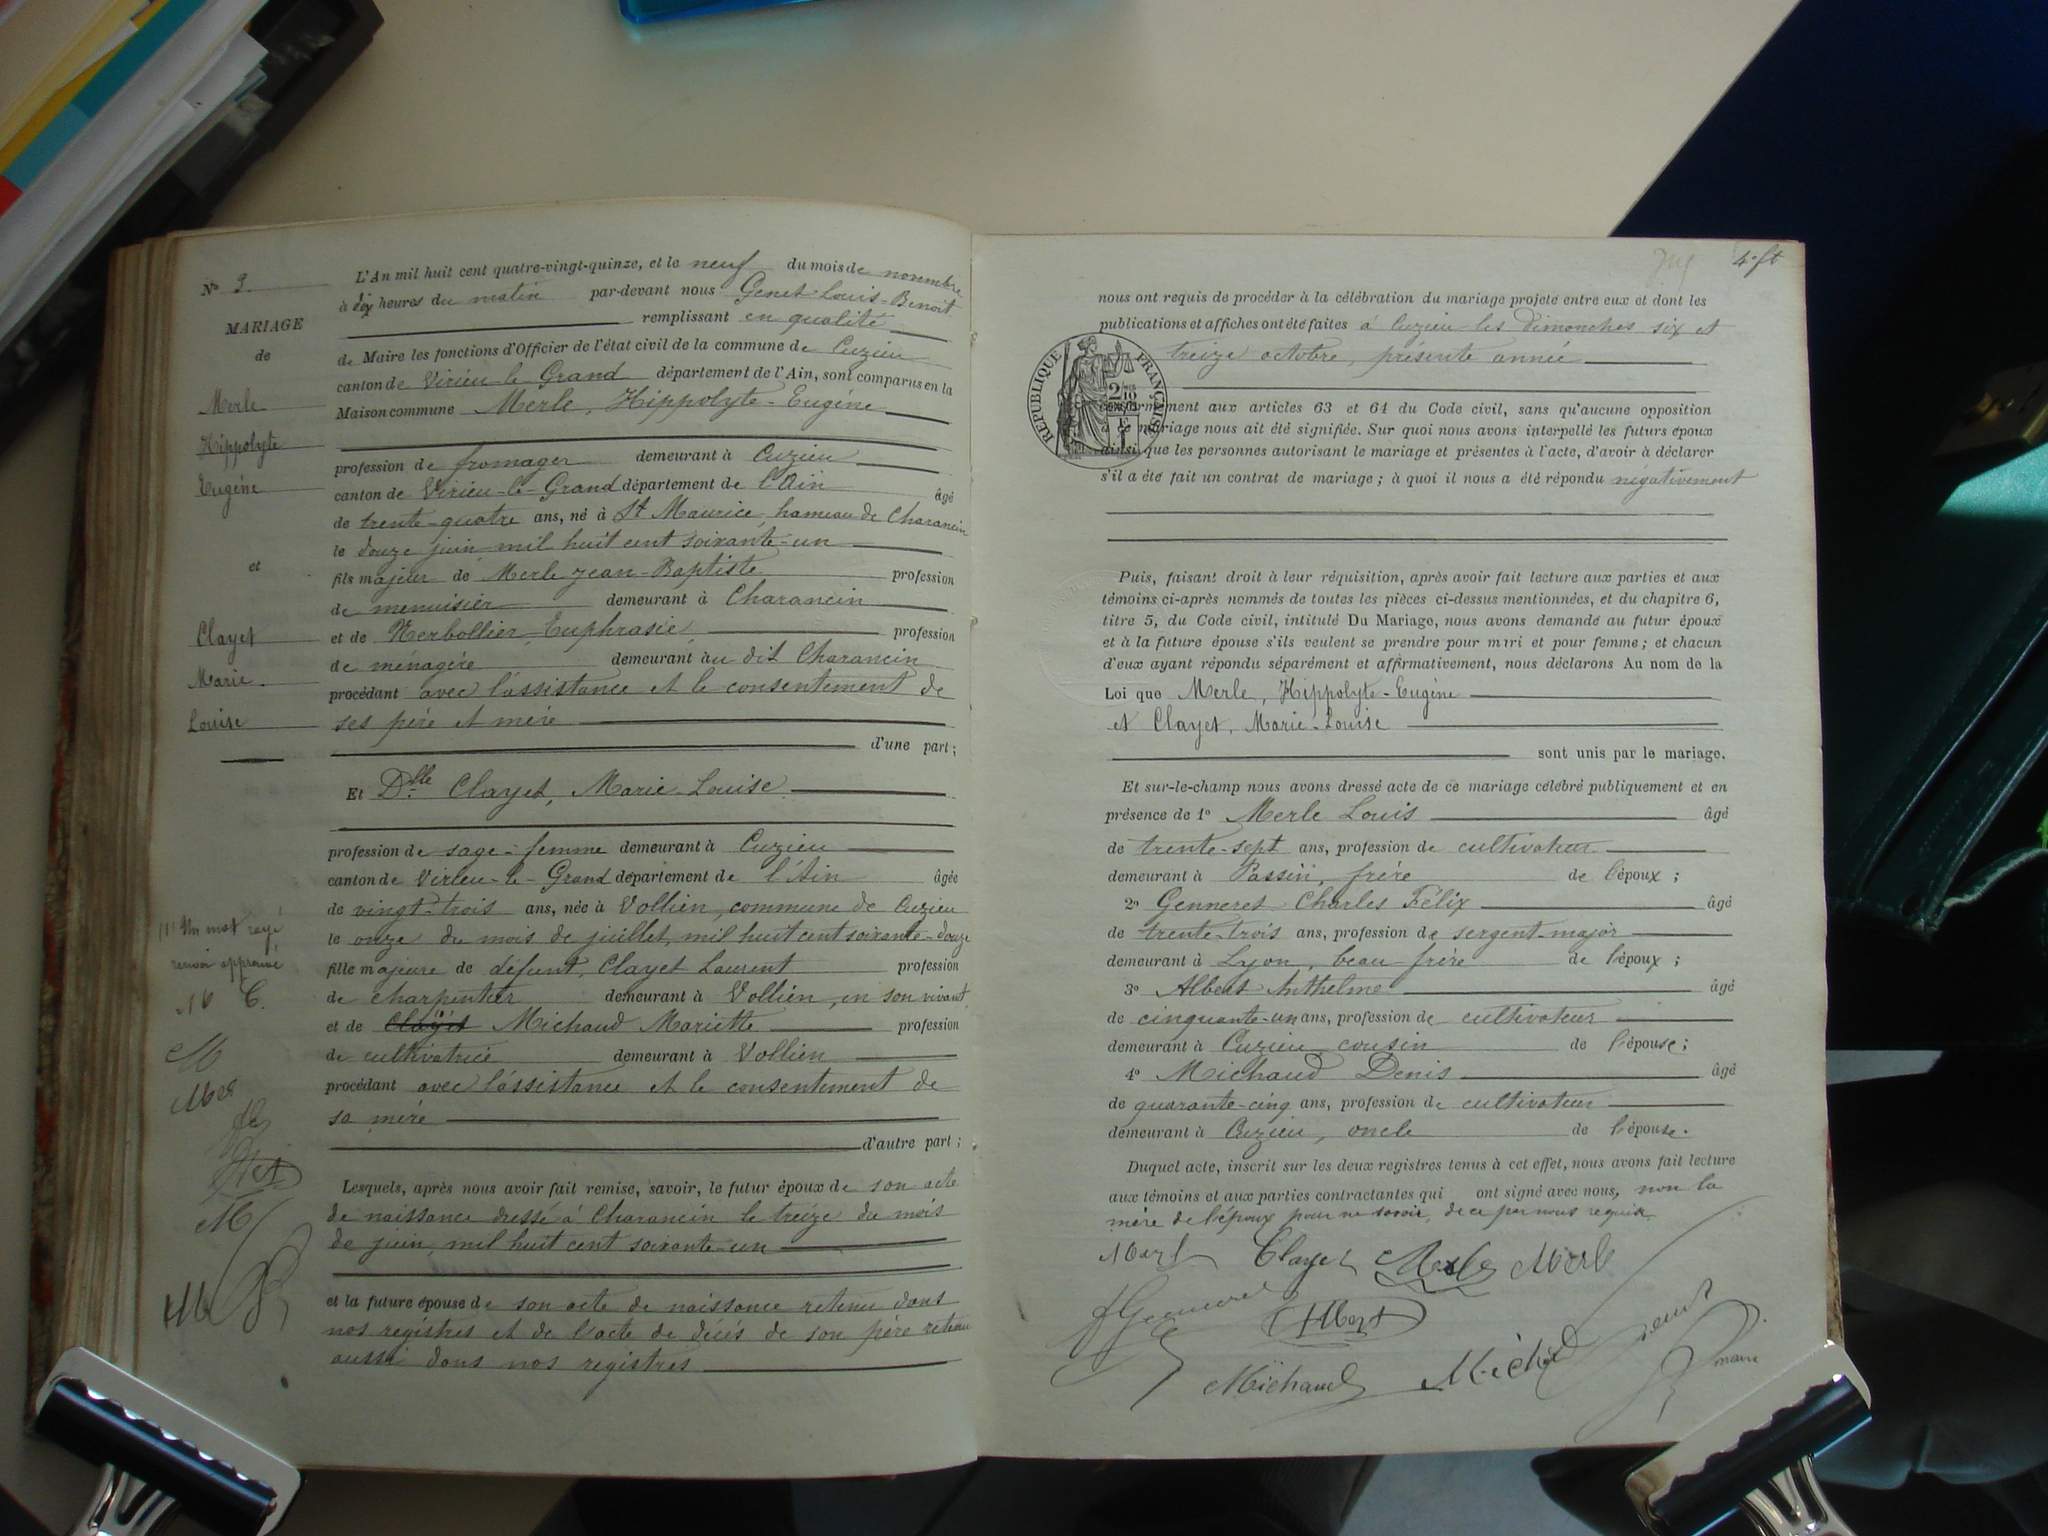 N° 9
MARIAGE
de
Merle
Hippolyte
Eugène
et
Clayet
Marie
Louise
L'An mil huit cent quatre-vingt-quinze, et le neuf du mois de novembre
à dix heures du matin par-devant nous Genet Louis-Benoit
remplissant en qualité
de Maire les fonctions d'Officier de l'état civil de la commune de Cuzieu
canton de Virieu-le-Grand département de l'Ain, sont comparus en la
Maison commune Merle, Hippolyte-Eugène
profession de fromager demeurant à Cuzieu
canton de Virieu-le-Grand département de l'Ain âgé
de trente-quatre ans, né à St Maurice, hameau de Charancin
le douze juin mil huit cent soixante-un
fils majeur de Merle Jean-Baptiste profession
de menuisier demeurant à Charancin
et de Nerbollier Euphrasie, profession
de ménagère demeurant au dit Charancin
procédant avec l'assistance et le consentement de
ses père et mère
d'une part;
Et Dlle Clayet, Marie-Louise
profession de sage-femme demeurant à Cuzieu
canton de Virieu-le-Grand département de l'Ain âgée
de vingt-trois ans, née à Vollien, commune de Cuzieu
le onze du mois de juillet, mil huit cent soixante-douze
fille majeure de défunt, Clayet Laurent profession
de charpentier demeurant à Vollien, en son vivant
et de Clayet Michaud Mariette profession
de cultivatrice demeurant à Vollien
procédant avec l'assistance et le consentement de
sa mère
d'autre part;
(1) Un mot rayé
renvoi approuvé
Lesquels, après nous avoir fait remise, savoir, le futur époux de son acte
de naissance dressé à Charancin le treize du mois
de juin, mil huit cent soixante-un
et la future épouse de son acte de naissance retenu dans
nos registres et de l'acte de décès de son père retenu
aussi dans nos registres
4e ft
nous ont requis de procéder à la célébration du mariage projeté entre eux et dont les
publications et affiches ont été faites à Cuzieu les dimanches six et
treize octobre, présente année
RÉPUBLIQUE FRANÇAISE
conformément aux articles 63 et 64 du Code civil, sans qu'aucune opposition
à ce mariage nous ait été signifiée. Sur quoi nous avons interpellé les futurs époux
ainsi que les personnes autorisant le mariage et présentes à l'acte, d'avoir à déclarer
s'il a été fait un contrat de mariage; à quoi il nous a été répondu négativement
Puis, faisant droit à leur réquisition, après avoir fait lecture aux parties et aux
témoins ci-après nommés de toutes les pièces ci-dessus mentionnées, et du chapitre 6,
titre 5, du Code civil, intitulé Du Mariage, nous avons demandé au futur époux
et à la future épouse s'ils veulent se prendre pour mari et pour femme; et chacun
d'eux ayant répondu séparément et affirmativement, nous déclarons Au nom de la
Loi que Merle, Hippolyte-Eugène
et Clayet, Marie-Louise
sont unis par le mariage.
Et sur-le-champ nous avons dressé acte de ce mariage célébré publiquement et en
présence de 1° Merle Louis âgé
de trente-sept ans, profession de cultivateur
demeurant à Passin, frère de l'époux;
2° Genneret Charles Félix âgé
de trente-trois ans, profession de sergent-major
demeurant à Lyon, beau-frère de l'époux;
3° Albert Anthelme âgé
de cinquante-un ans, profession de cultivateur
demeurant à Cuzieu cousin de l'épouse;
4° Michaud Denis âgé
de quarante-cinq ans, profession de cultivateur
demeurant à Cuzieu, oncle de l'épouse.
Duquel acte, inscrit sur les deux registres tenus à cet effet, nous avons fait lecture
aux témoins et aux parties contractantes qui ont signé avec nous, non la
mère de l'époux pour ne savoir, de ce par nous requise
Merle Clayet Merle Merle
Albert
Michaud Michaud Genet
maire